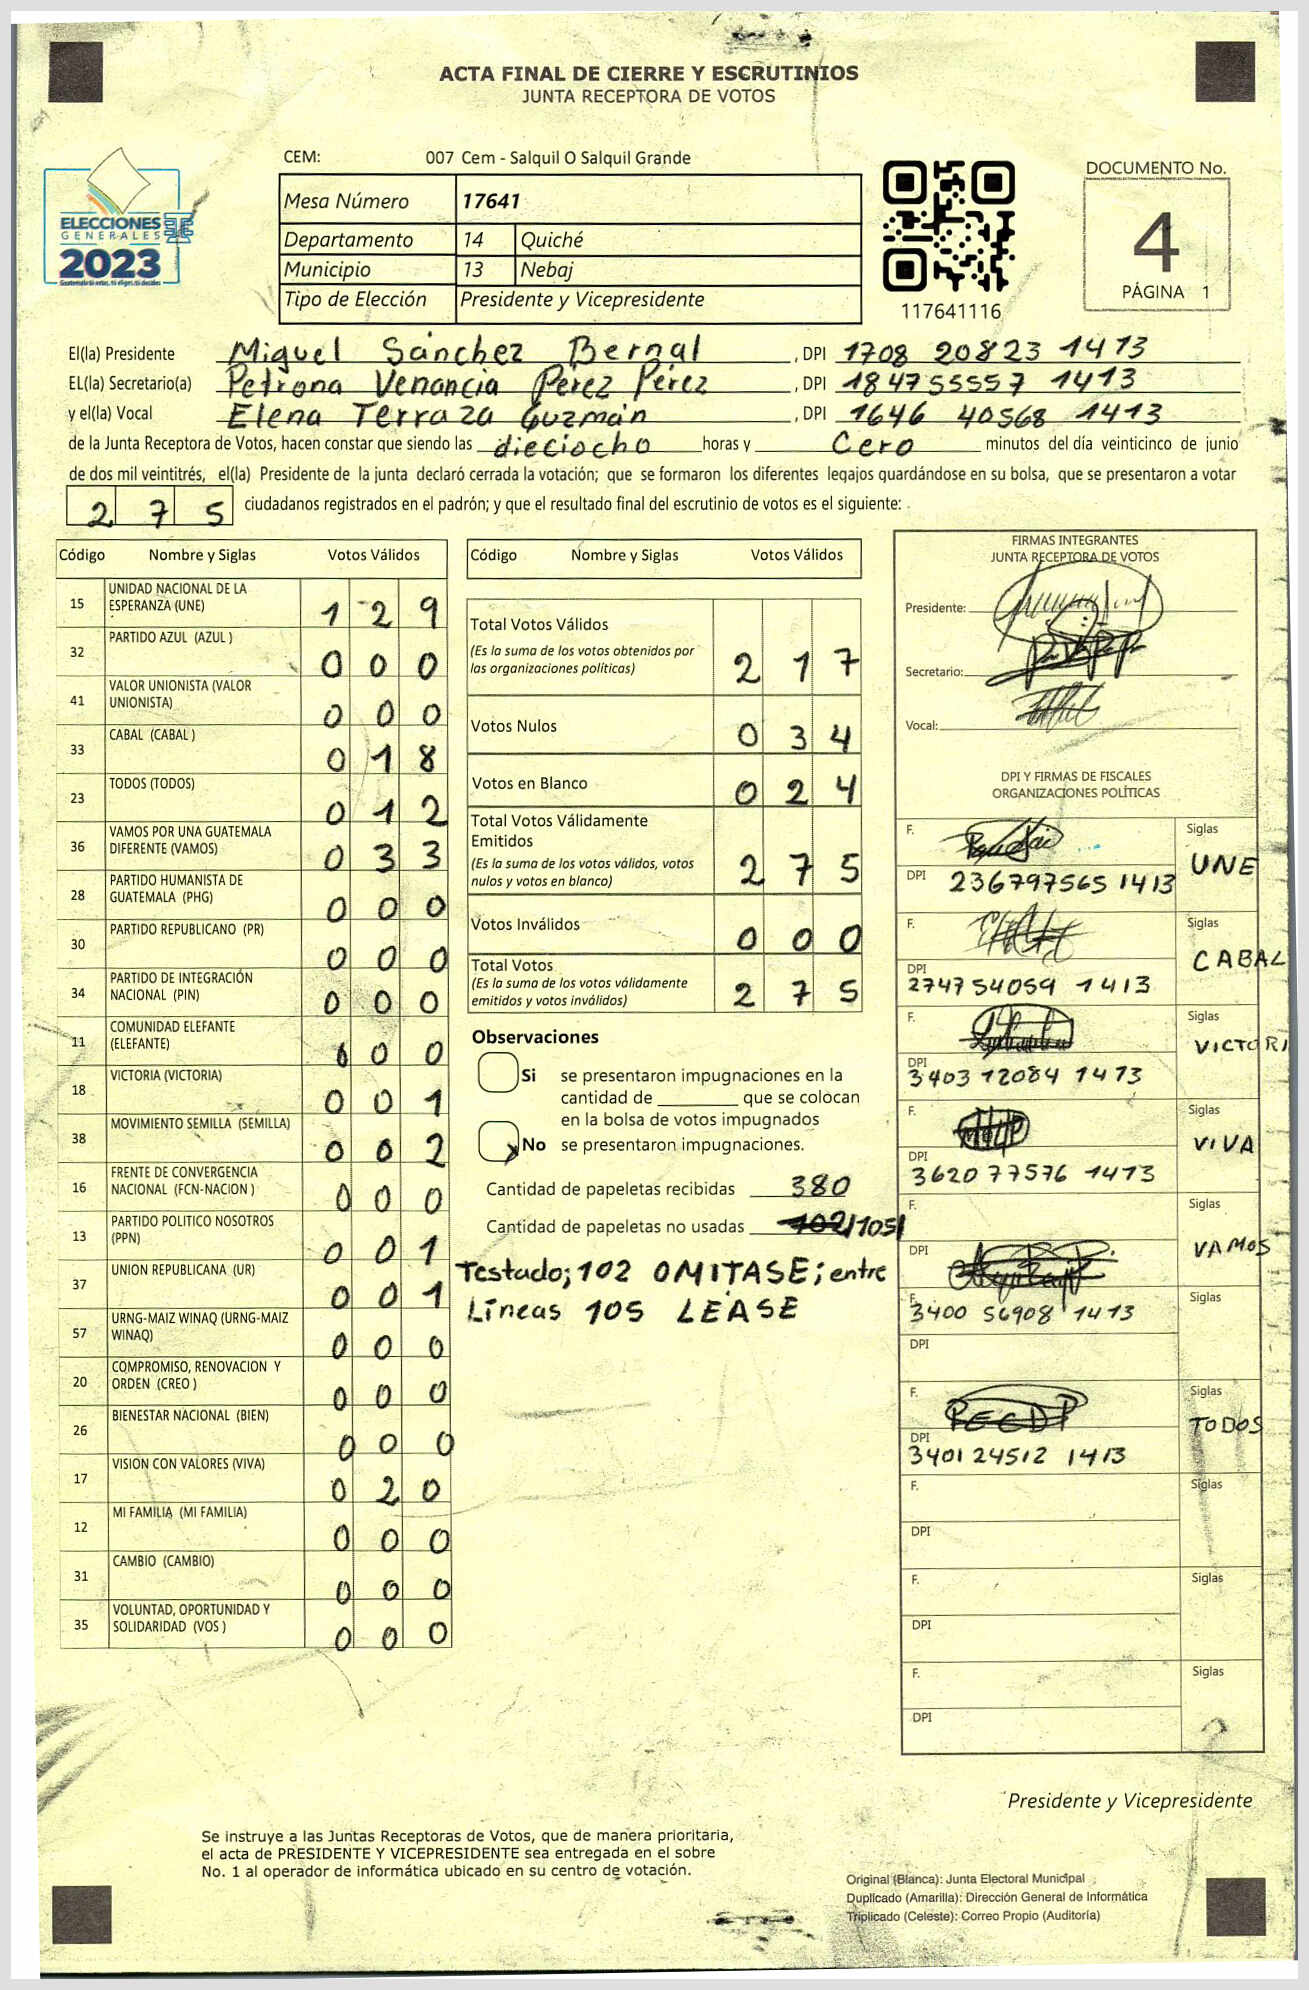 ACTA FINAL DE CIERRE Y ESCRUTINIOS
JUNTA RECEPTORA DE VOTOS
CEM: 007 Cem - Salquil O Salquil Grande
DOCUMENTO No.
4
PÁGINA 1
ELECCIONES
GENERALES
2023
Guatemala: tú votas, tú eliges, tú decides
Mesa Número 17641
Departamento 14 Quiché
Municipio 13 Nebaj
Tipo de Elección Presidente y Vicepresidente
117641116
El(la) Presidente Miguel Sánchez Bernal , DPI 1708 20823 1413
EL(la) Secretario(a) Petrona Venancia Pérez Pérez , DPI 1847 55557 1413
y el(la) Vocal Elena Terraza Guzmán , DPI 1646 40568 1413
de la Junta Receptora de Votos, hacen constar que siendo las dieciocho horas y Cero minutos del día veinticinco de junio
de dos mil veintitrés, el(la) Presidente de la junta declaró cerrada la votación; que se formaron los diferentes legajos guardándose en su bolsa, que se presentaron a votar
2 7 5 ciudadanos registrados en el padrón; y que el resultado final del escrutinio de votos es el siguiente:
Código Nombre y Siglas Votos Válidos
15 UNIDAD NACIONAL DE LA ESPERANZA (UNE) 1 2 9
32 PARTIDO AZUL (AZUL ) 0 0 0
41 VALOR UNIONISTA (VALOR UNIONISTA) 0 0 0
33 CABAL (CABAL ) 0 1 8
23 TODOS (TODOS) 0 1 2
36 VAMOS POR UNA GUATEMALA DIFERENTE (VAMOS) 0 3 3
28 PARTIDO HUMANISTA DE GUATEMALA (PHG) 0 0 0
30 PARTIDO REPUBLICANO (PR) 0 0 0
34 PARTIDO DE INTEGRACIÓN NACIONAL (PIN) 0 0 0
11 COMUNIDAD ELEFANTE (ELEFANTE) 0 0 0
18 VICTORIA (VICTORIA) 0 0 1
38 MOVIMIENTO SEMILLA (SEMILLA) 0 0 2
16 FRENTE DE CONVERGENCIA NACIONAL (FCN-NACION ) 0 0 0
13 PARTIDO POLITICO NOSOTROS (PPN) 0 0 1
37 UNION REPUBLICANA (UR) 0 0 1
57 URNG-MAIZ WINAQ (URNG-MAIZ WINAQ) 0 0 0
20 COMPROMISO, RENOVACION Y ORDEN (CREO ) 0 0 0
26 BIENESTAR NACIONAL (BIEN) 0 0 0
17 VISION CON VALORES (VIVA) 0 2 0
12 MI FAMILIA (MI FAMILIA) 0 0 0
31 CAMBIO (CAMBIO) 0 0 0
35 VOLUNTAD, OPORTUNIDAD Y SOLIDARIDAD (VOS ) 0 0 0
Código Nombre y Siglas Votos Válidos
Total Votos Válidos
(Es la suma de los votos obtenidos por
las organizaciones políticas) 2 1 7
Votos Nulos 0 3 4
Votos en Blanco 0 2 4
Total Votos Válidamente
Emitidos
(Es la suma de los votos válidos, votos
nulos y votos en blanco) 2 7 5
Votos Inválidos 0 0 0
Total Votos
(Es la suma de los votos válidamente
emitidos y votos inválidos) 2 7 5
Observaciones
Si se presentaron impugnaciones en la
cantidad de ________ que se colocan
en la bolsa de votos impugnados
No se presentaron impugnaciones.
Cantidad de papeletas recibidas 380
Cantidad de papeletas no usadas 102/105/
Testado; 102 OMITASE; entre
Líneas 105 LEASE
FIRMAS INTEGRANTES
JUNTA RECEPTORA DE VOTOS
Presidente:
Secretario:
Vocal:
DPI Y FIRMAS DE FISCALES
ORGANIZACIONES POLÍTICAS
F. Siglas UNE
DPI 236797565 1413
F. Siglas CABAL
DPI 2747 54059 1413
F. Siglas VICTORI
DPI 3403 12084 1413
F. Siglas VIVA
DPI 3620 77576 1413
F. Siglas VAMOS
DPI
F. 3400 56908 1413 Siglas
DPI
F. Siglas TODOS
DPI 3401 24512 1413
F. Siglas
DPI
F. Siglas
DPI
F. Siglas
DPI
Presidente y Vicepresidente
Se instruye a las Juntas Receptoras de Votos, que de manera prioritaria,
el acta de PRESIDENTE Y VICEPRESIDENTE sea entregada en el sobre
No. 1 al operador de informática ubicado en su centro de votación.
Original (Blanca): Junta Electoral Municipal
Duplicado (Amarilla): Dirección General de Informática
Triplicado (Celeste): Correo Propio (Auditoría)